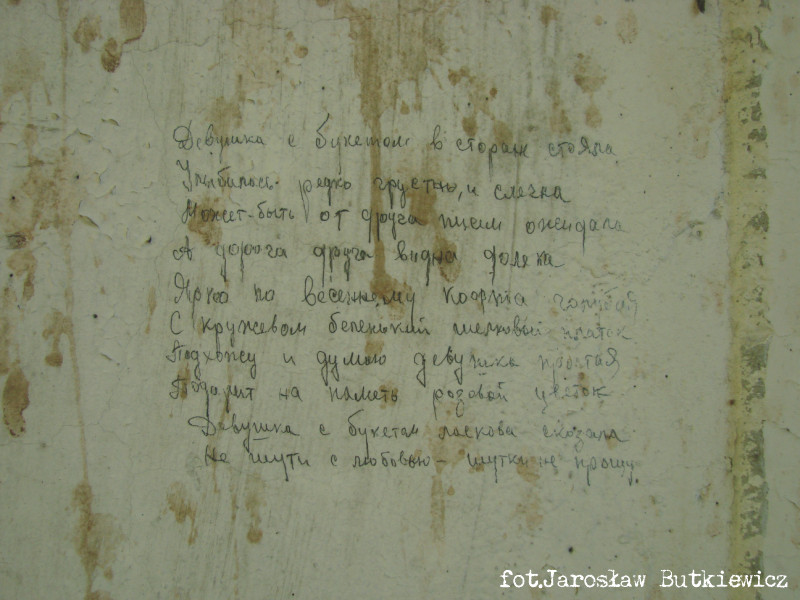 Девушка с букетом в стораж стояла
Улыбалась редко грустно, и слегка
Может-быть от друга писем ожидала
А дорога друга видна далека
Ярко по весеннему кофта голубая
С кружевом беленький шелковый платок
Подхожу и думаю девушка простая
Подарит на память розовой цветок
Девушка с букетам ласкова сказала
Не шути с любовью - шутки не прощу
fot.Jarosław Butkiewicz